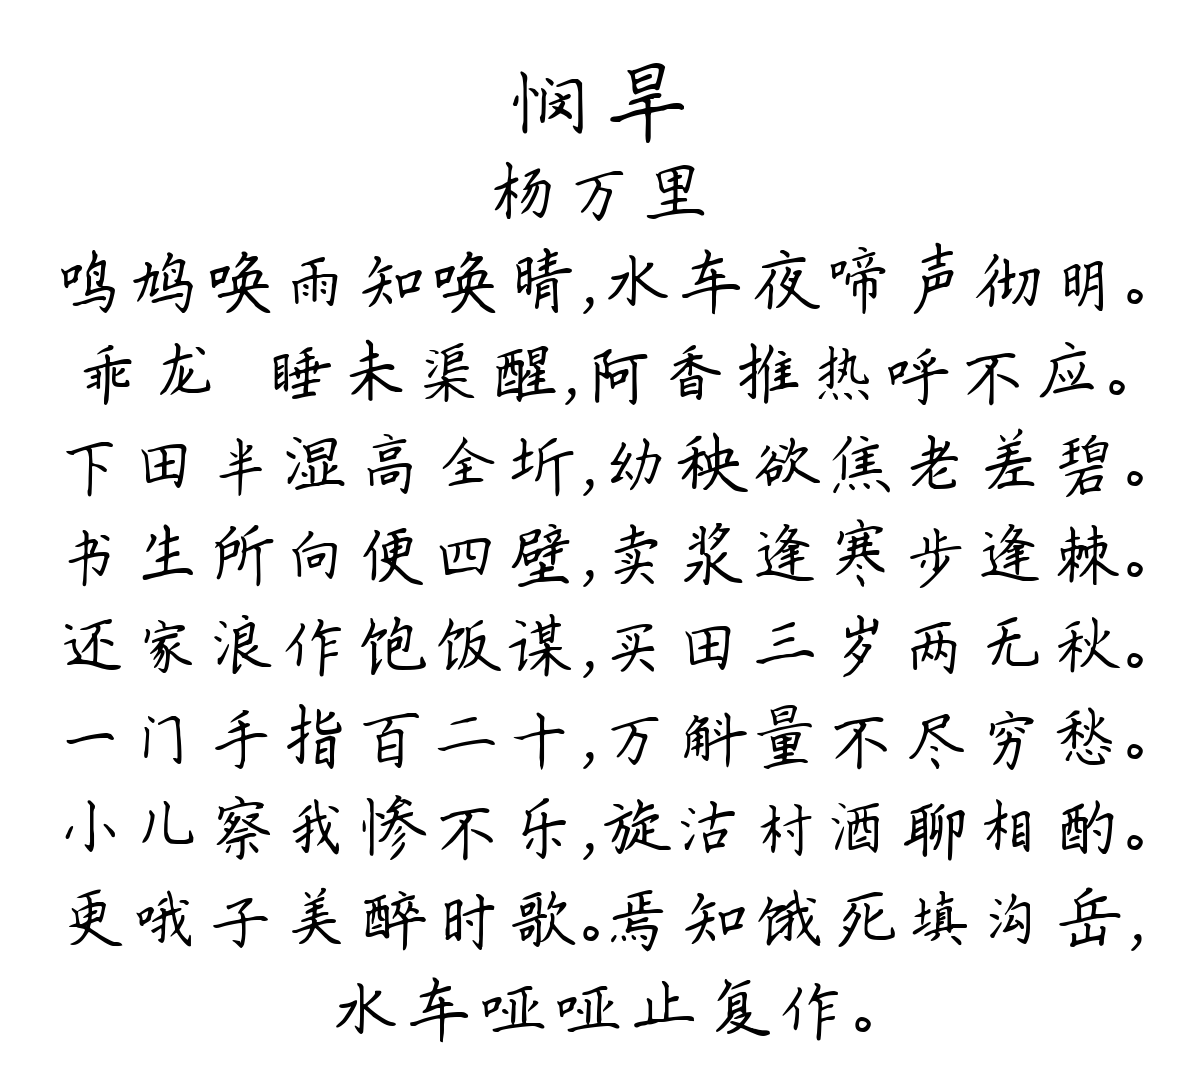 悯旱
杨万里
鸣鸠唤雨知唤晴,水车夜啼声彻明。
乖龙 睡未渠醒,阿香推热呼不应。
下田半湿高全坼,幼秧欲焦老差碧。
书生所向便四壁,卖浆逢寒步逢棘。
还家浪作饱饭谋,买田三岁两无秋。
一门手指百二十,万斛量不尽穷愁。
小儿察我惨不乐,旋沽村酒聊相酌。
更哦子美醉时歌。焉知饿死填沟岳,
水车哑哑止复作。